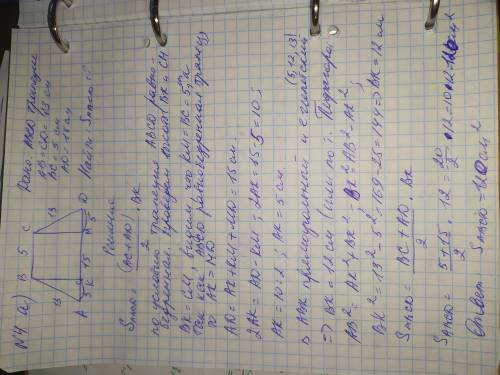 N4 (а)
B 5 C
13 13
A 5 K 15 M 5 D
Дано: ABCD трапеция
AB = CD = 13 см
BC = 5 см
AD = 15 см
Найти: SABCD - ?
Решение
SABCD = (BC+AD)/2 · BK
по условию трапеция ABCD равно-
BK = CM, видим, что KM = BC = 5 см
Так как ABCD равнобедренная трапеция
=> AK = MD
AD = AK + KM + MD = 15 см.
2AK = AD - KM; 2AK = 15 - 5 = 10;
AK = 10 : 2; AK = 5 см
Δ ABK прямоугольный и египетский (5, 12, 13)
=> BK = 12 см (или по т. Пифагора)
AB² = AK² + BK²; BK² = AB² - AK²;
BK² = 13² - 5² = 169 - 25 = 144 => BK = 12 см
SABCD = BC + AD/2 · BK
SABCD = 5+15/2 · 12 = 20/2 · 12 = 10 · 12 = 120 см²
Ответ: SABCD = 120 см²